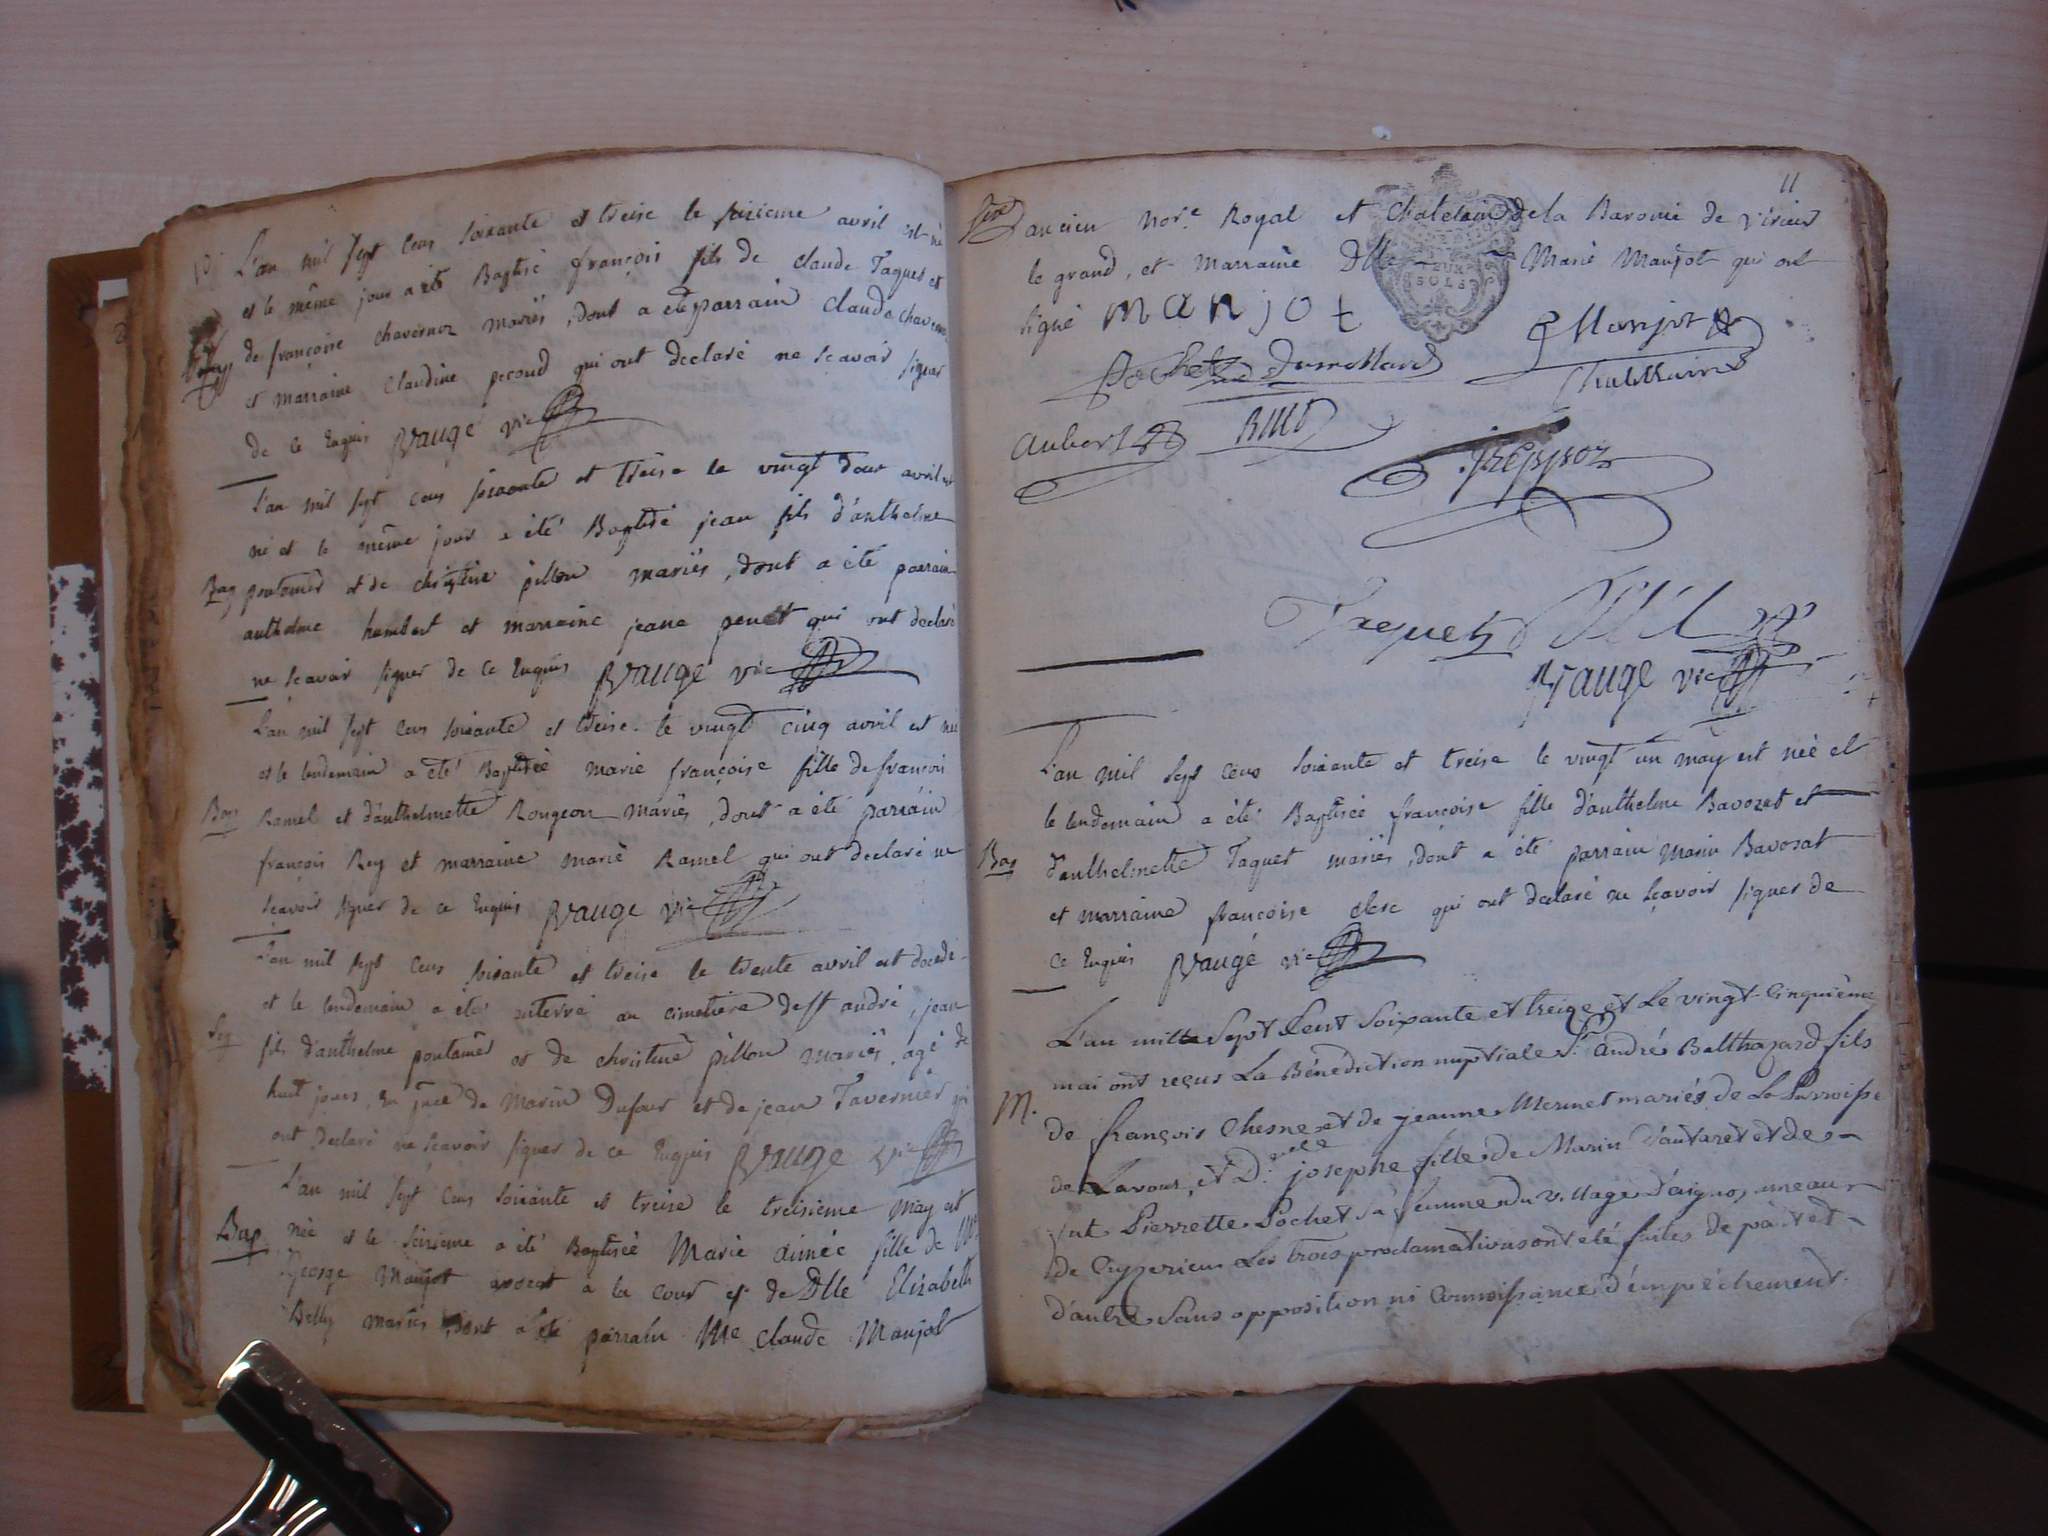 L'an mil sept cens soixante et treise le seizieme avril est né
et le même jour a été Baptisé françois fils de claude Taquet et
de françoise chavernoz mariés, dont a été parrain Claude chavernoz
et marraine Claudine perond qui ont declaré ne sçavoir signer
de ce Enquis Vaugé vic
L'an mil sept cens soixante et treise le vingt deux avril est
né et le même jour a été Baptisé jean fils d'anthelme
Bap poutomer et de christine pillon mariés, dont a été parrain
anthelme humbert et marraine jeane penet qui ont declaré
ne sçavoir signer de ce Enquis Vauge vic
L'an mil sept cens soixante et treise le vingt cinq avril est née
et le lendemain a été Baptisée marie françoise fille de françois
Bap Ramel et d'anthelmette Rougeon mariés, dont a été parrain
françois Rey et marraine marie Ramel qui ont declaré ne
sçavoir signer de ce Enquis Vauge vic
L'an mil sept cens soixante et treise le trente avril est decedé
et le lendemain a été enterré au cimetiere de st andré, jean
Sep fils d'anthelme poutomer et de christine pillon mariés, agé de
huit jours, en pnce de Marin Dufour et de jean Tavernier qui
ont declaré ne sçavoir signer de ce Enquis Vauge vic
L'an mil sept cens soixante et treise le treisieme May est
Bap née et le seizieme a été Baptisée Marie aimée fille de Mr
George Manjot avocat a la cour et de Dlle Elizabeth
Belly mariés dont a été parrain Me claude Manjot
11
ancien Nore Royal et Chatelain de la Baronie de Virieu
le grand, et Marraine Dlle Marie Manjot qui ont
signé Manjot
DEUX
SOLS
Manjot
Pochet Dumollard
Aubert
Taquet
Vauge vic
L'an mil sept cens soixante et treise le vingt un may est née et
le lendemain a été Baptisée françoise fille d'anthelme Bavozat et
Bap d'anthelmette Taquet mariés, dont a été parrain Marin Bavosat
et marraine françoise clerc qui ont declaré ne sçavoir signer de
ce Enquis Vaugé vic
L'an mille Sept Cent Soixante et treize et Le vingt-cinquième
mai ont reçus La Bénédiction nuptiale Sr. André Balthazard fils
M. de françois Chesne et de jeanne Mermet mariés de La Parroisse
de Lavour, et D.elle josephe fille de Marin Dautaret et de
fut Pierrette Pochet sa femme du village D'aignoz, hameau
de Ceyzerieu Les trois proclamations ont eté faites de part et
d'autre Sans opposition ni Connoissance d'empêchement